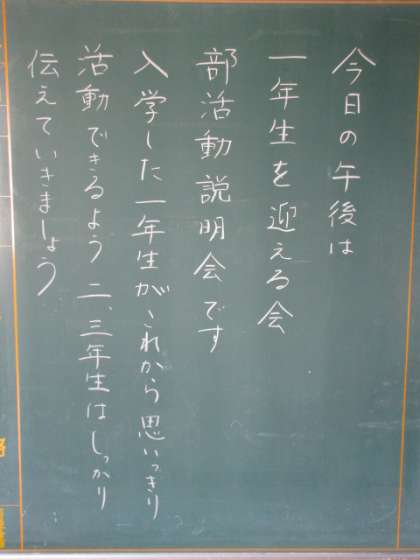 今日の午後は
一年生を迎える会
部活動説明会です
入学した一年生がこれから思いっきり
活動できるよう二、三年生はしっかり
伝えていきましょう